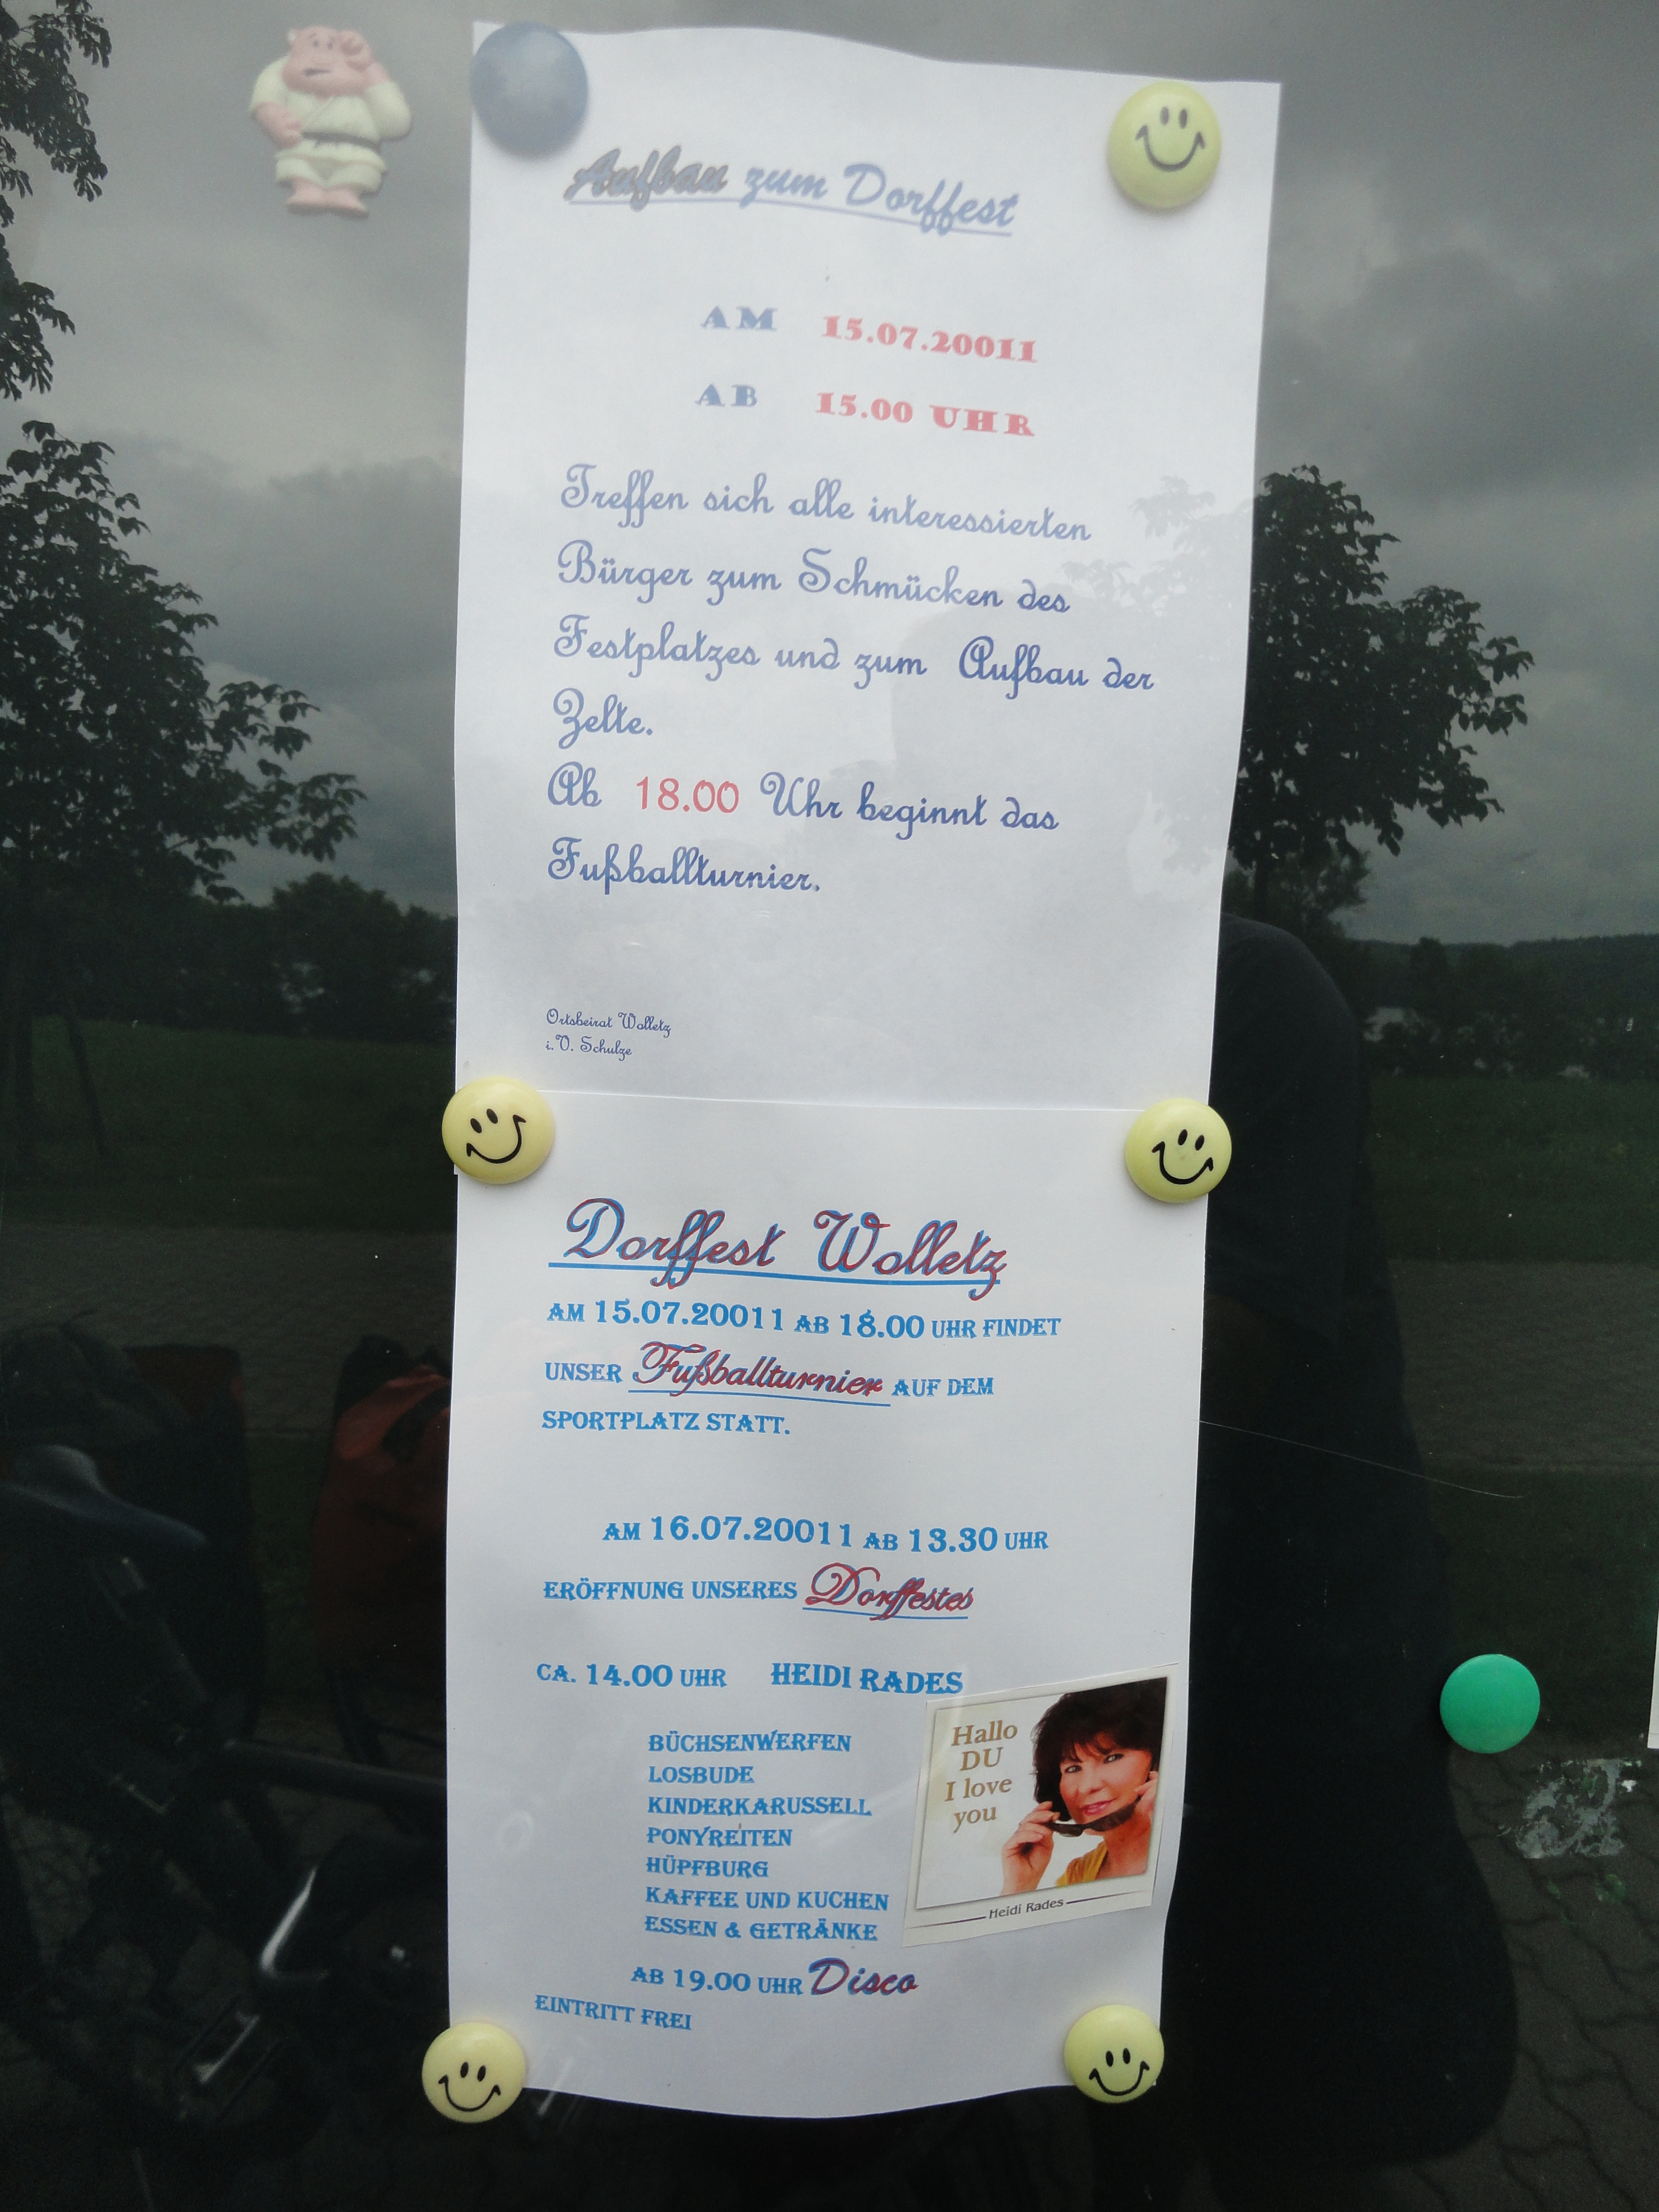 Aufbau zum Dorffest
AM 15.07.20011
AB 15.00 UHR
Treffen sich alle interessierten
Bürger zum Schmücken des
Festplatzes und zum Aufbau der
Zelte.
Ab 18.00 Uhr beginnt das
Fußballturnier.
Ortsbeirat Wolletz
i.V. Schulze
Dorffest Wolletz
AM 15.07.20011 AB 18.00 UHR FINDET
UNSER Fußballturnier AUF DEM
SPORTPLATZ STATT.
AM 16.07.20011 AB 13.30 UHR
ERÖFFNUNG UNSERES Dorffestes
CA. 14.00 UHR HEIDI RADES
BÜCHSENWERFEN
LOSBUDE
KINDERKARUSSELL
PONYREITEN
HÜPFBURG
KAFFEE UND KUCHEN
ESSEN & GETRÄNKE
Hallo
DU
I love
you
Heidi Rades
AB 19.00 UHR Disco
EINTRITT FREI